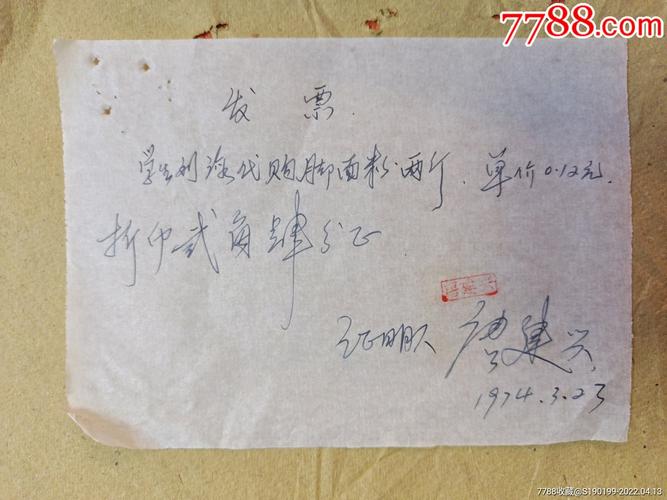 7788.com
发票
学生刘 代购脚面粉两斤. 单价0.12元.
折币贰角肆分正
证明人 唐建兴
1974.3.23
7788收藏@S190199-2022.04.13